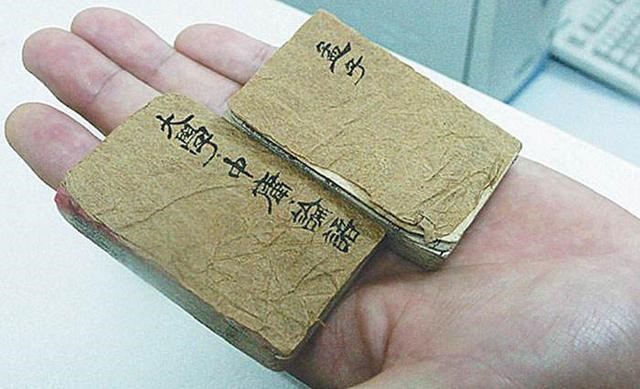 大學·中庸·論語
孟子